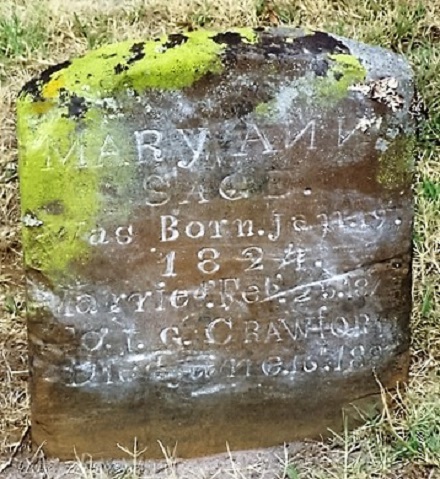 MARY ANN
SAGE.
Was Born. Jan. 19.
1824.
Married. Feb. 25. 18
G. CRAWFOR
Died June. 18